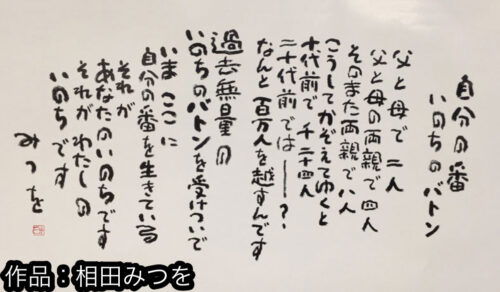 自分の番
いのちのバトン
父と母で 二人
父と母の両親で 四人
そのまた両親で 八人
こうしてかぞえてゆくと
十代前で 千二十四人
二十代前では──?
なんと 百万人を越すんです
過去無量の
いのちのバトンを受けついで
いま ここに
自分の番を生きている
それが
あなたのいのちです
それがわたしの
いのちです
みつを
作品:相田みつを